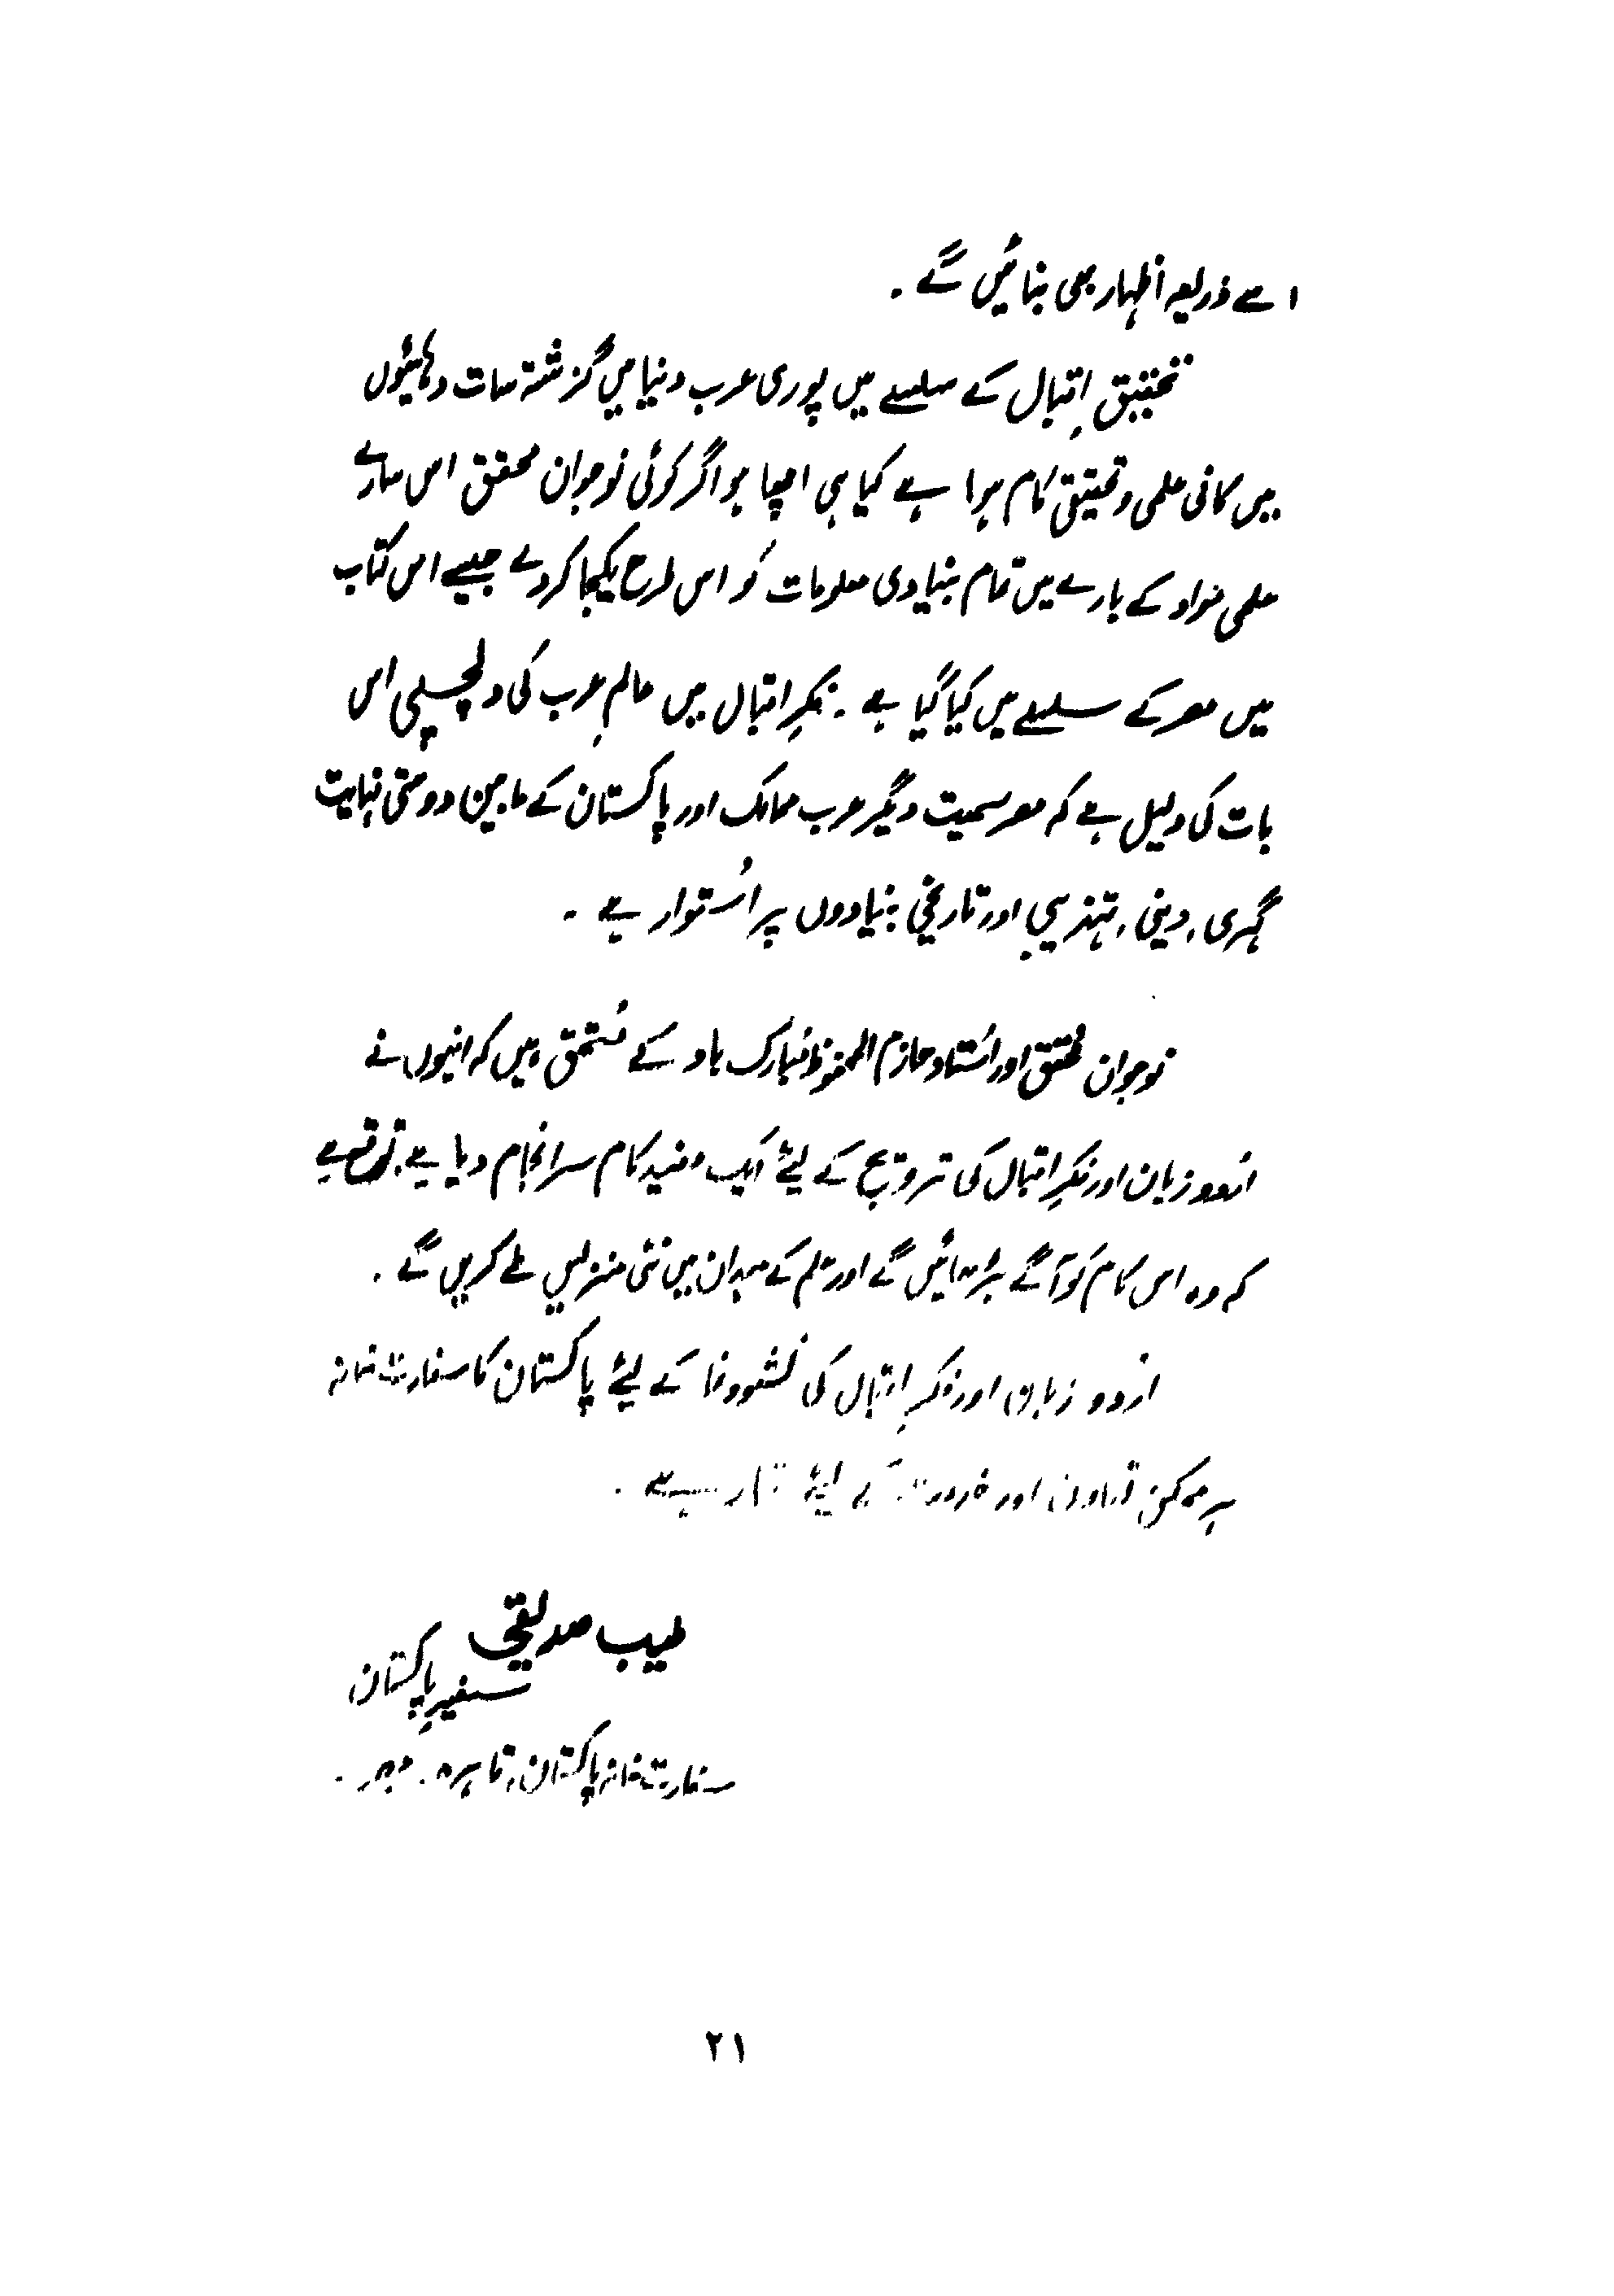 اسے ذریعہ اظہار بھی بنائیں گے ۔
تحقیقِ اقبال کے سلسلے میں پوری عرب دنیا میں گزشتہ سات دہائیوں
میں کافی علمی و تحقیقی کام ہوا ہے کیا ہی اچھا ہو اگر کوئی نوجوان محقق اس سارے
علمی مواد کے بارے میں تمام بنیادی معلومات کو اس طرح یکجا کر دے جیسے اس کتاب
میں مصر کے سلسلے میں کیا گیا ہے ۔ فکرِ اقبال میں عالمِ عرب کی دلچسپی اس
بات کی دلیل ہے کہ مصر سمیت دیگر عرب ممالک اور پاکستان کے مابین دوستی نہایت
گہری، دینی، تہذیبی اور تاریخی بنیادوں پر اُستوار ہے ۔
نوجوان محقق اور اُستاد حازم المحفوظ مُبارک باد کے مُستحق ہیں کہ انہوں نے
اُردو زبان اور فکرِ اقبال کی ترویج کے لیئے ایک مفید کام سرانجام دیا ہے۔ توقع ہے
کہ وہ اس کام کو آگے بڑھائیں گے اور علم کے میدان میں نئی منزلیں طے کریں گے ۔
اُردو زبان اور فکرِ اقبال کی نشوونما کے لیئے پاکستان کا سفارت خانہ
ہر ممکن تعاون اور کے لیئے تیار ہے ۔
طیب صدیقی
سفیرِ پاکستان
سفارت خانہ پاکستان، قاہرہ ۔ مصر ۔
٢١